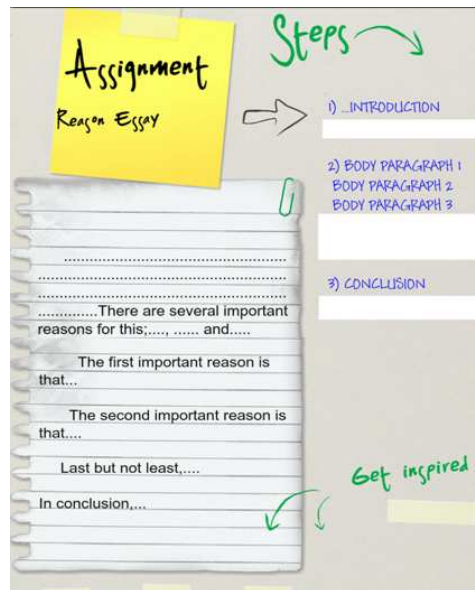 Assignment
Reason Essay
Steps
1) ...INTRODUCTION
2) BODY PARAGRAPH 1
BODY PARAGRAPH 2
BODY PARAGRAPH 3
3) CONCLUSION
......................................................
......................................................
......................................................
..............There are several important
reasons for this;...., ...... and.....
The first important reason is
that...
The second important reason is
that....
Last but not least,....
In conclusion,...
Get inspired